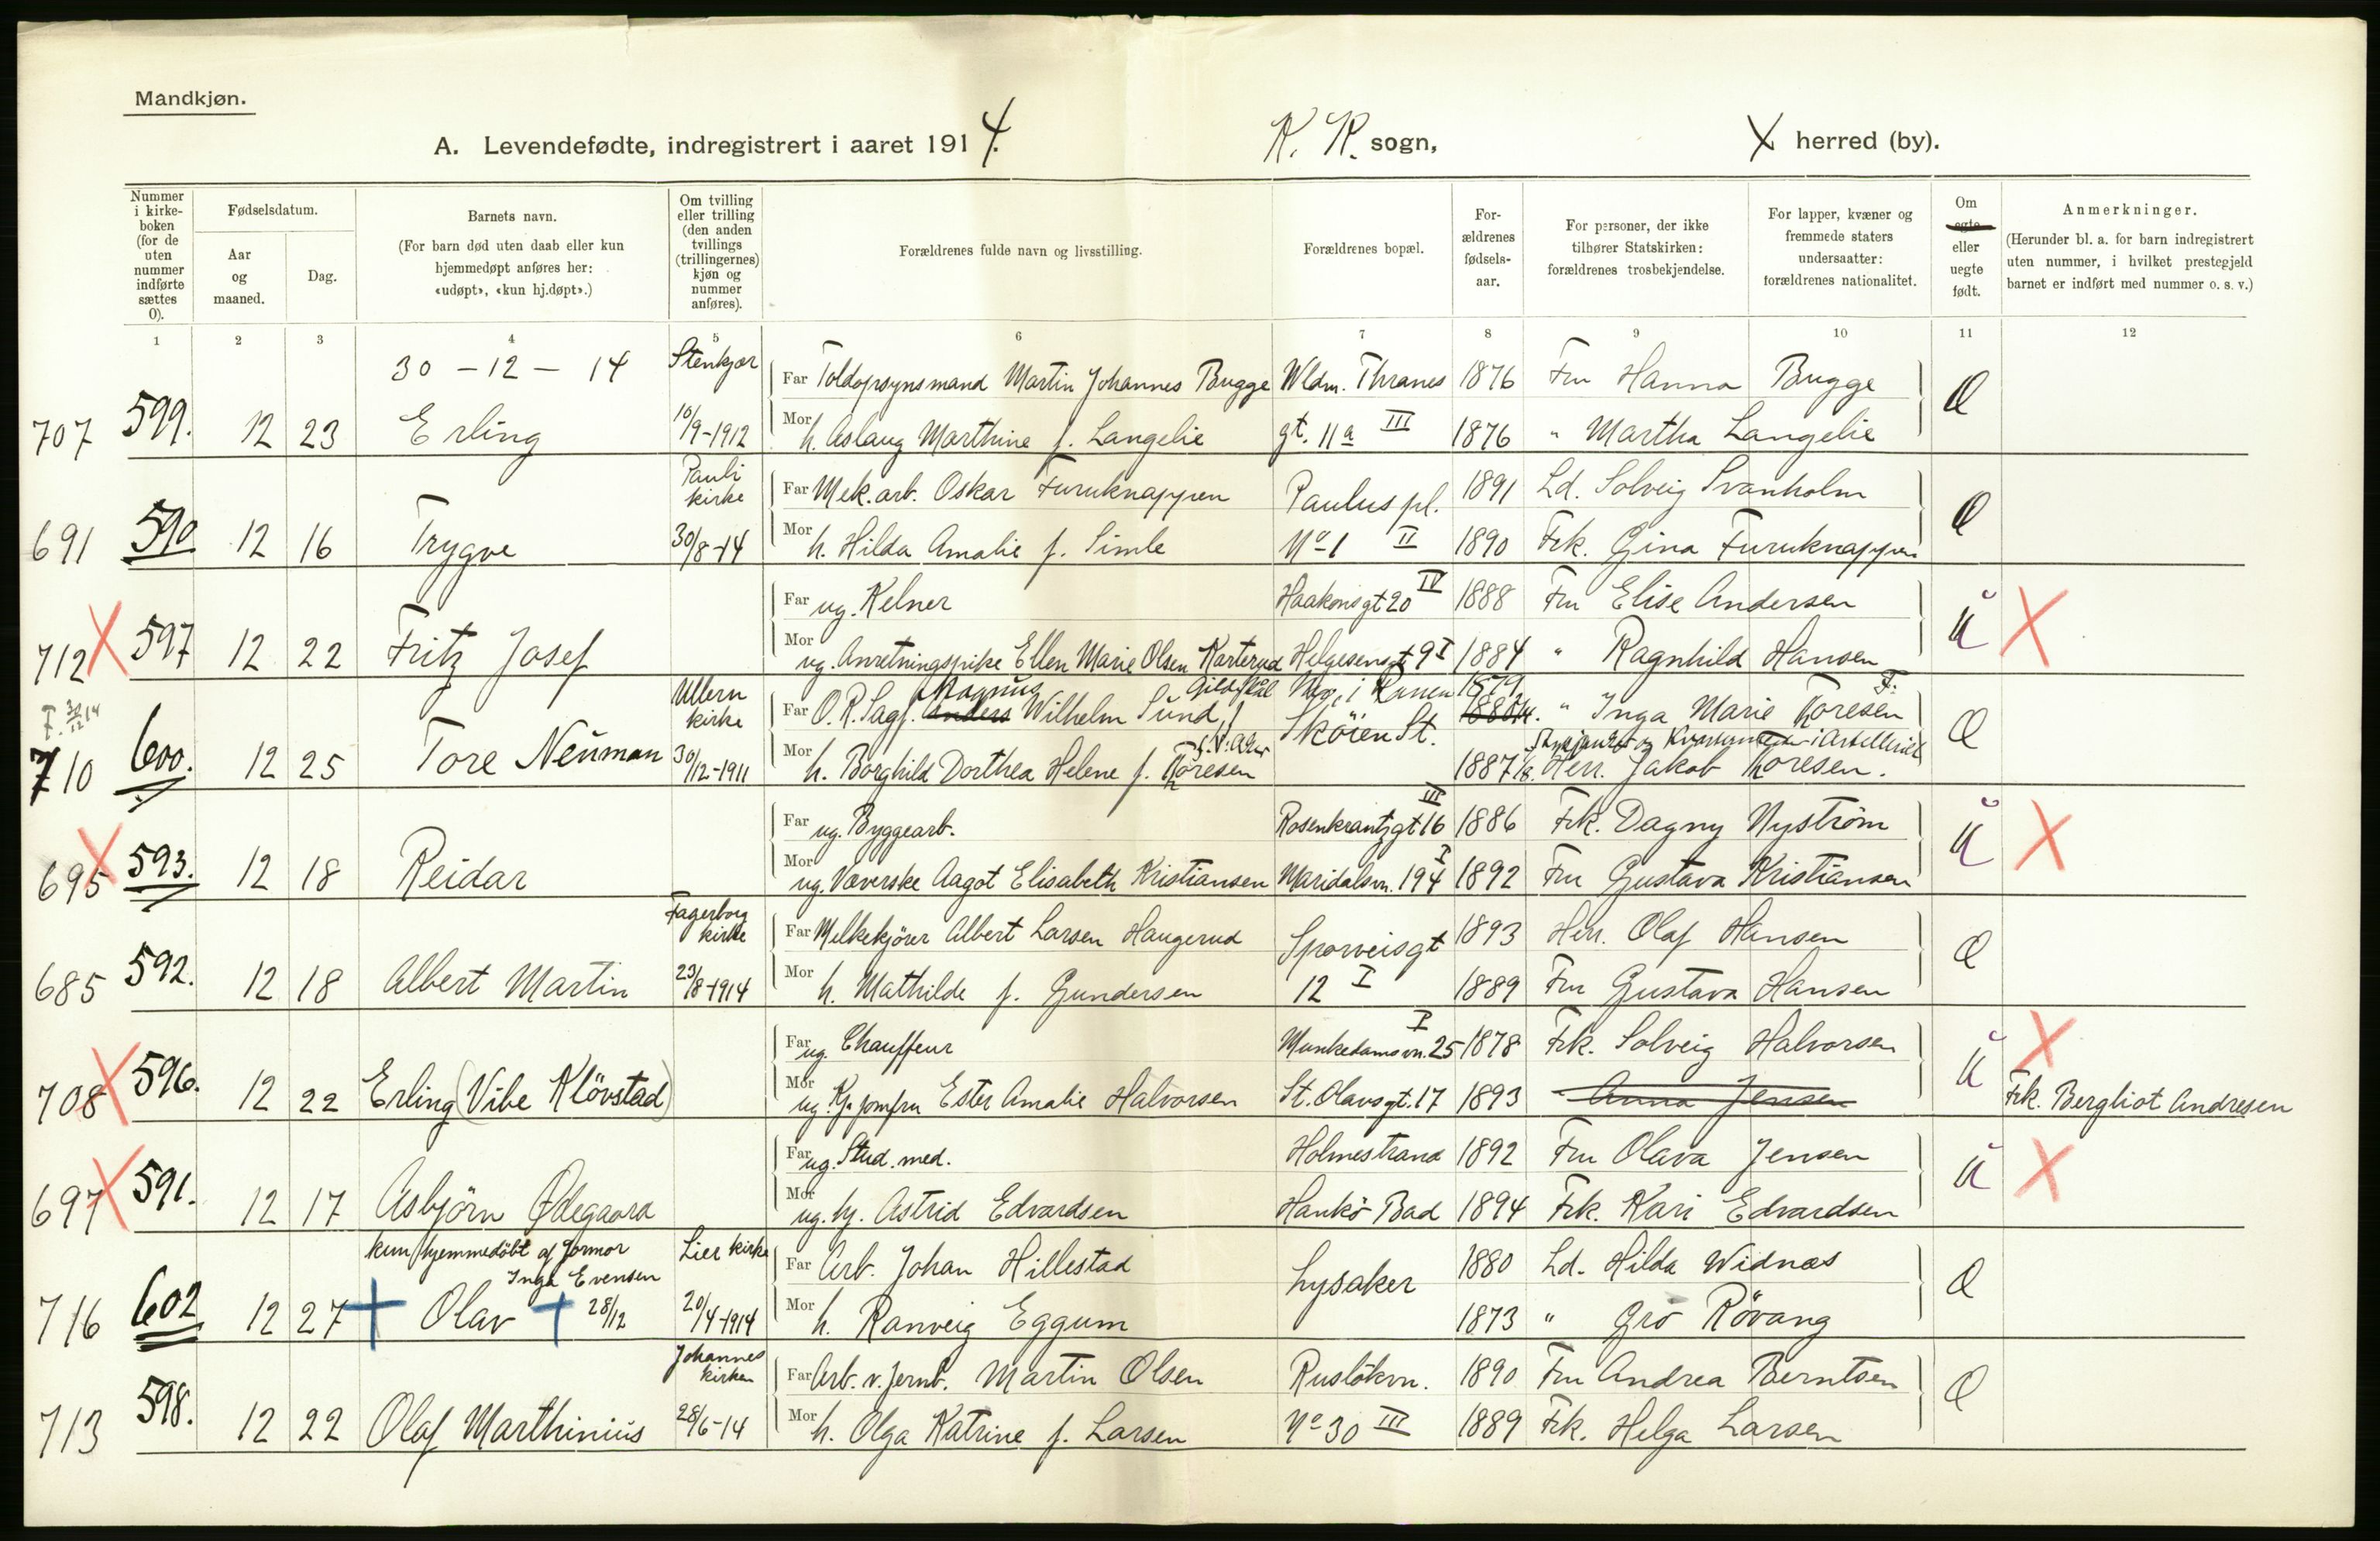 Mandkjøn.
A. Levendefødte, indregistrert i aaret 1914. K. K. sogn, X herred (by).
Nummer i kirke-boken (for de uten nummer indførte sættes 0).
Fødselsdatum.
Aar og maaned.
Dag.
Barnets navn.
(For barn død uten daab eller kun hjemmedøpt anføres her: «udøpt», «kun hj.døpt».)
Om tvilling eller trilling (den anden tvillings (trillingernes) kjøn og nummer anføres).
Forældrenes fulde navn og livsstilling.
Forældrenes bopæl.
For-ældrenes fødsels-aar.
For personer, der ikke tilhører Statskirken: forældrenes trosbekjendelse.
For lapper, kvæner og fremmede staters undersaatter: forældrenes nationalitet.
Om egte eller uegte født.
Anmerkninger.
(Herunder bl. a. for barn indregistrert uten nummer, i hvilket prestegjeld barnet er indført med nummer o. s. v.)
1 2 3 4 5 6 7 8 9 10 11 12
30 - 12 - 14 Stenkjær Far Toldopsynsmand Martin Johannes Bugge Wldm. Thranes 1876 Fru Hanna Bugge
707 599. 12 23 Erling 10/9-1912 Mor h. Aslaug Marthine f. Langelie gt. 11a III 1876 " Martha Langelie
Pauli kirke Far Mek. arb. Oskar Furuknappen Paulus pl. 1891 Ld. Solveig Svanholm
691 590 12 16 Trygve 30/8-14 Mor h. Hilda Amalie f. Simle No 1 II 1890 Frk. Gina Furuknappen
Far ug. Kelner Haakonsgt 20 IV 1888 Fru Elise Andersen
712 X 597 12 22 Fritz Josef Mor ug. Anretningspike Ellen Marie Olsen Karterud Helgesensgt 9 I 1884 " Ragnhild Hansen ü X
Ullern kirke Far O. R. Sagf. Anders Magnus Wilhelm Sund, Gildeskål Sköien St. " Inga Marie Thoresen
710 600. 12 25 Tore Neüman 30/12-1911 Mor h. Borghild Dorthea Helene f. Thoresen 1887 Herr. Jakob Thoresen.
Far ug. Byggearb. Rosenkrantzgt 16 III 1886 Frk. Dagny Nyström
695 X 593. 12 18 Reidar Mor ug. Væverske Aagot Elisabeth Kristiansen Maridalsvn. 194 I 1892 Fru Gustava Kristiansen ü X
Fagerborg kirke Far Melkekjörer Albert Larsen Haugerud Sporveisgt 1893 Herr. Olaf Hansen
685 592. 12 18 Albert Martin 23/8-1914 Mor h. Mathilde f. Gundersen 12 I 1889 Fru Gustava Hansen
Far ug. Chauffeur Munkedamsvn. 25 I 1878 Frk. Solveig Halvorsen
708 X 596. 12 22 Erling (Vibe Klövstad) Mor ug. Kj. jomfru Ester Amalie Halvorsen St. Olavsgt. 17 1893 Anna Jensen ü X Frk. Bergliot Andresen
Far ug. Stud. med. Holmestrand 1892 Fru Olava Jensen
697 X 591. 12 17 Asbjörn Ødegaard Mor ug. hj. Astrid Edvardsen Hankö Bad 1894 Frk. Kari Edvardsen ü X
kun hjemmedöbt af Jormor Inga Evensen Lier kirke Far Arb. Johan Hillestad Lysaker 1880 Ld. Hilda Widnæs
716 602 12 27 + Olav + 28/12 20/4-1914 Mor h. Ranveig Eggum 1873 " Gro Rövang
Johannes kirken Far Arb. v. jernb. Martin Olsen Ruslökvn. 1890 Fru Andrea Berntsen
713 598. 12 22 Olaf Marthinius 28/6-14 Mor h. Olga Katrine f. Larsen No 30 III 1889 Frk. Helga Larsen